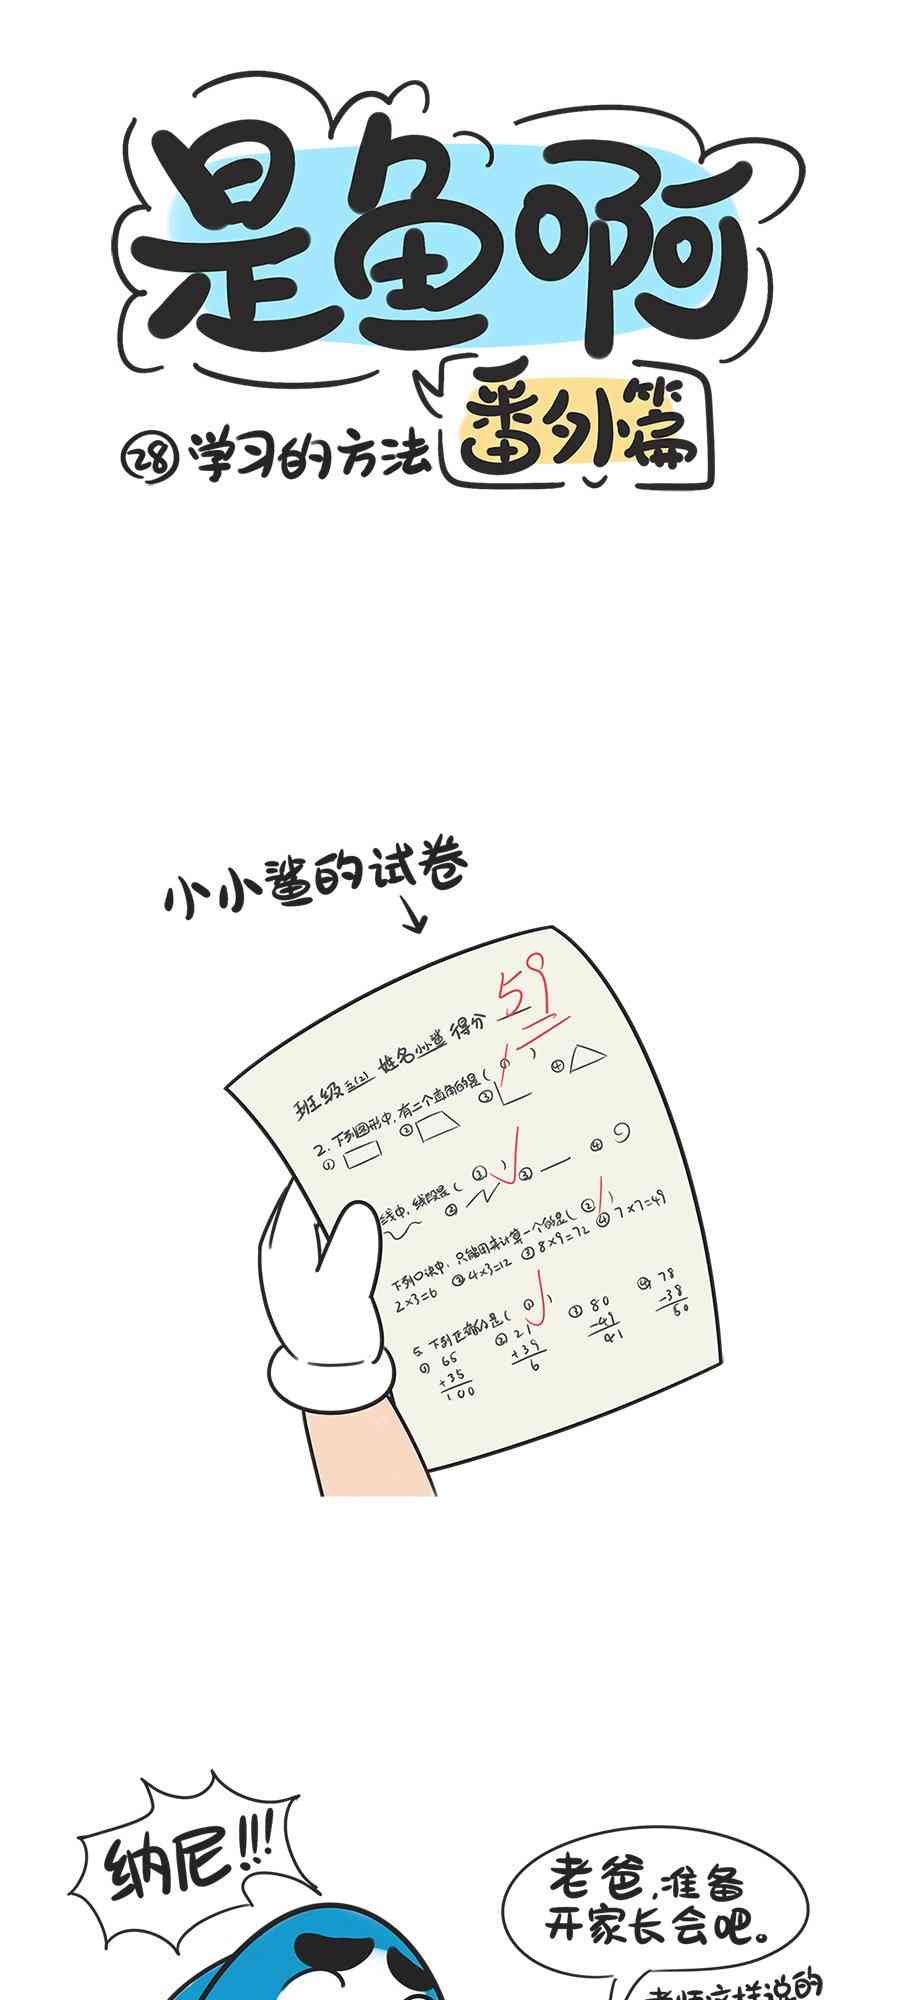 是鱼啊
番外篇
㉘学习的方法
小小鲨的试卷
59
班级 五(2) 姓名 小小鲨 得分
2. 下列图形中,有二个直角的是( ① )
① ② ③ ④
线中,线段是( ③ )
② ③ ④
下列口诀中,只能用来计算一个的是( ② )
2×3=6 ② 4×3=12 ③ 8×9=72 ④ 7×7=49
5. 下列正确的是( ① )
① 65 ② 21 ③ 80 ④ 78
+35 +39 -49 -38
100 6 41 50
纳尼!!!
老爸,准备
开家长会吧。
老师这样说的